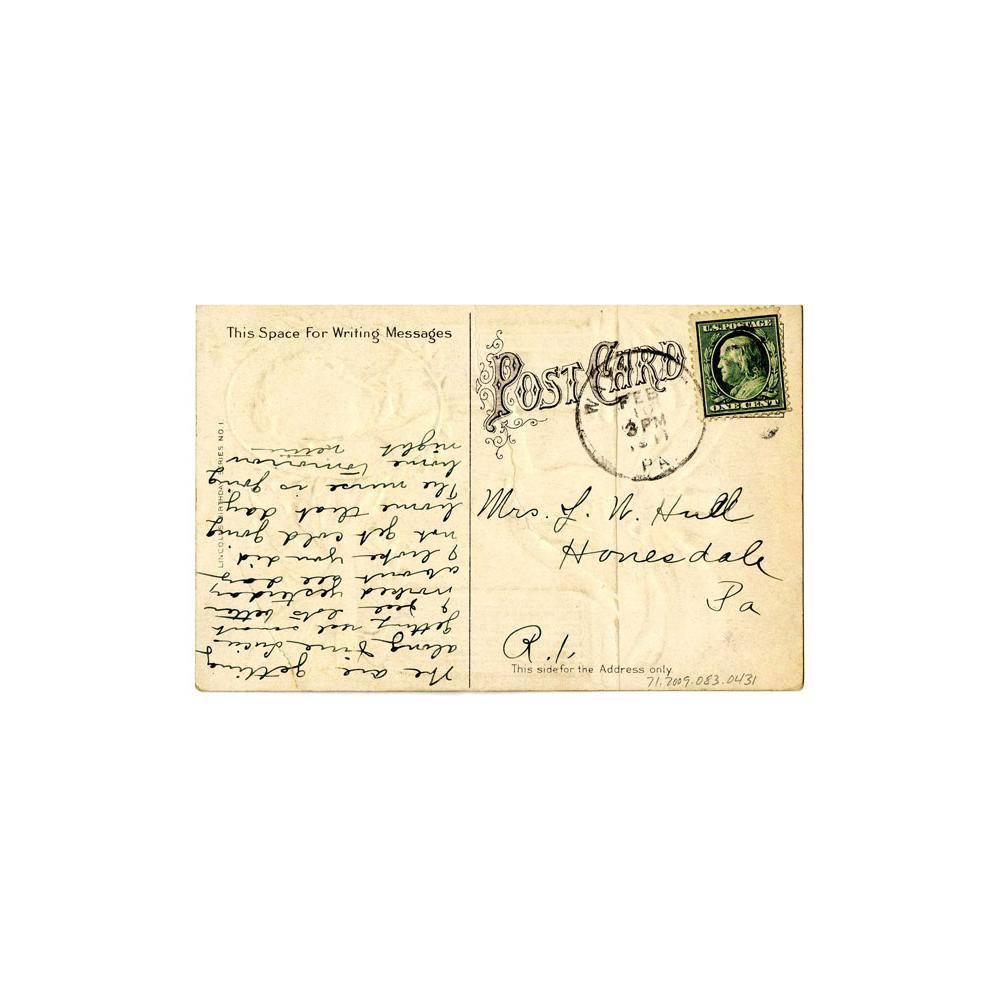 This Space For Writing Messages
POST CARD
U.S. POSTAGE
ONE CENT
FEB
10
3 PM
1911
PA.
LINCOLN'S BIRTHDAY SERIES NO. 1.
The are getting
along fine
getting real smart
I lots better
worked yesterday
about day
I hope you did
not get cold going
home that day
The nurse is going
home tomorrow
night
Mrs. L. N. Hull
Honesdale
Pa
R.1.
This side for the Address only
71.2009.083.0431